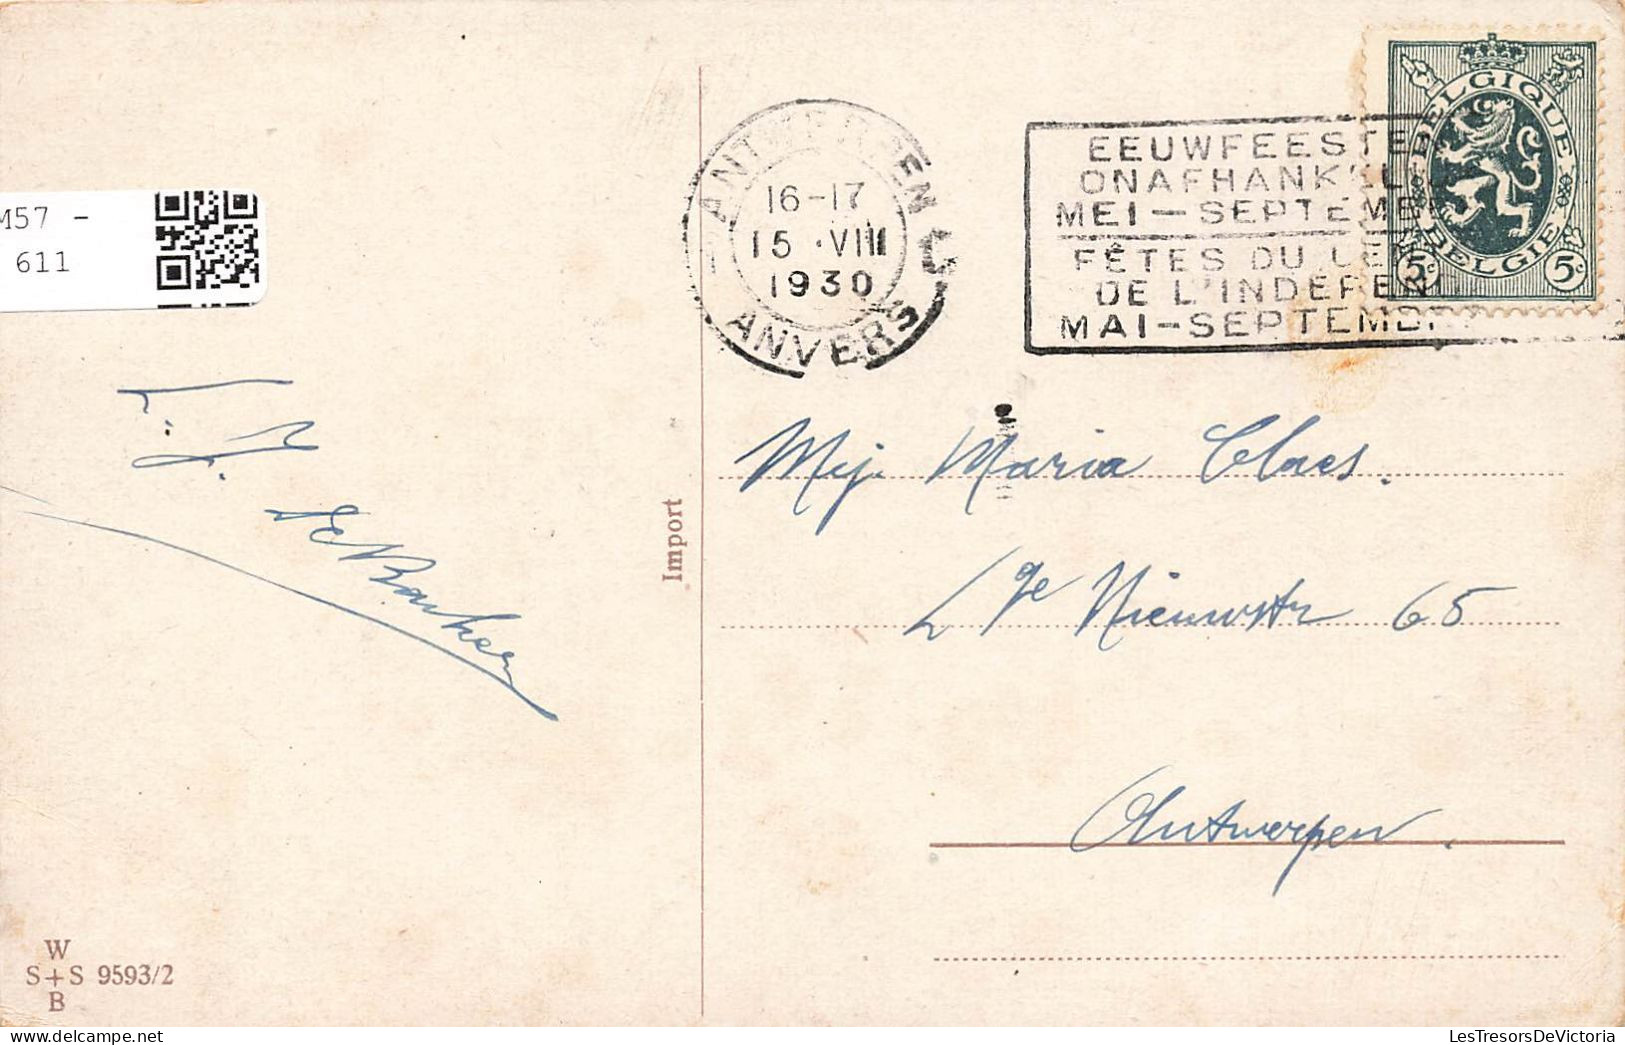 M57 -
611
ANTWERPEN
16-17
15 VIII
1930
ANVERS
EEUWFEESTE
ONAFHANKEL
MEI - SEPTEMB
FÊTES DU CE
DE L'INDEPEN
MAI - SEPTEMB
BELGIQUE
BELGIE
5c 5c
De Backer
Import
Mej. Maria Claes.
Lge Nieuwstr 65
Antwerpen.
W
S+S 9593/2
B
LesTresorsDeVictoria.com